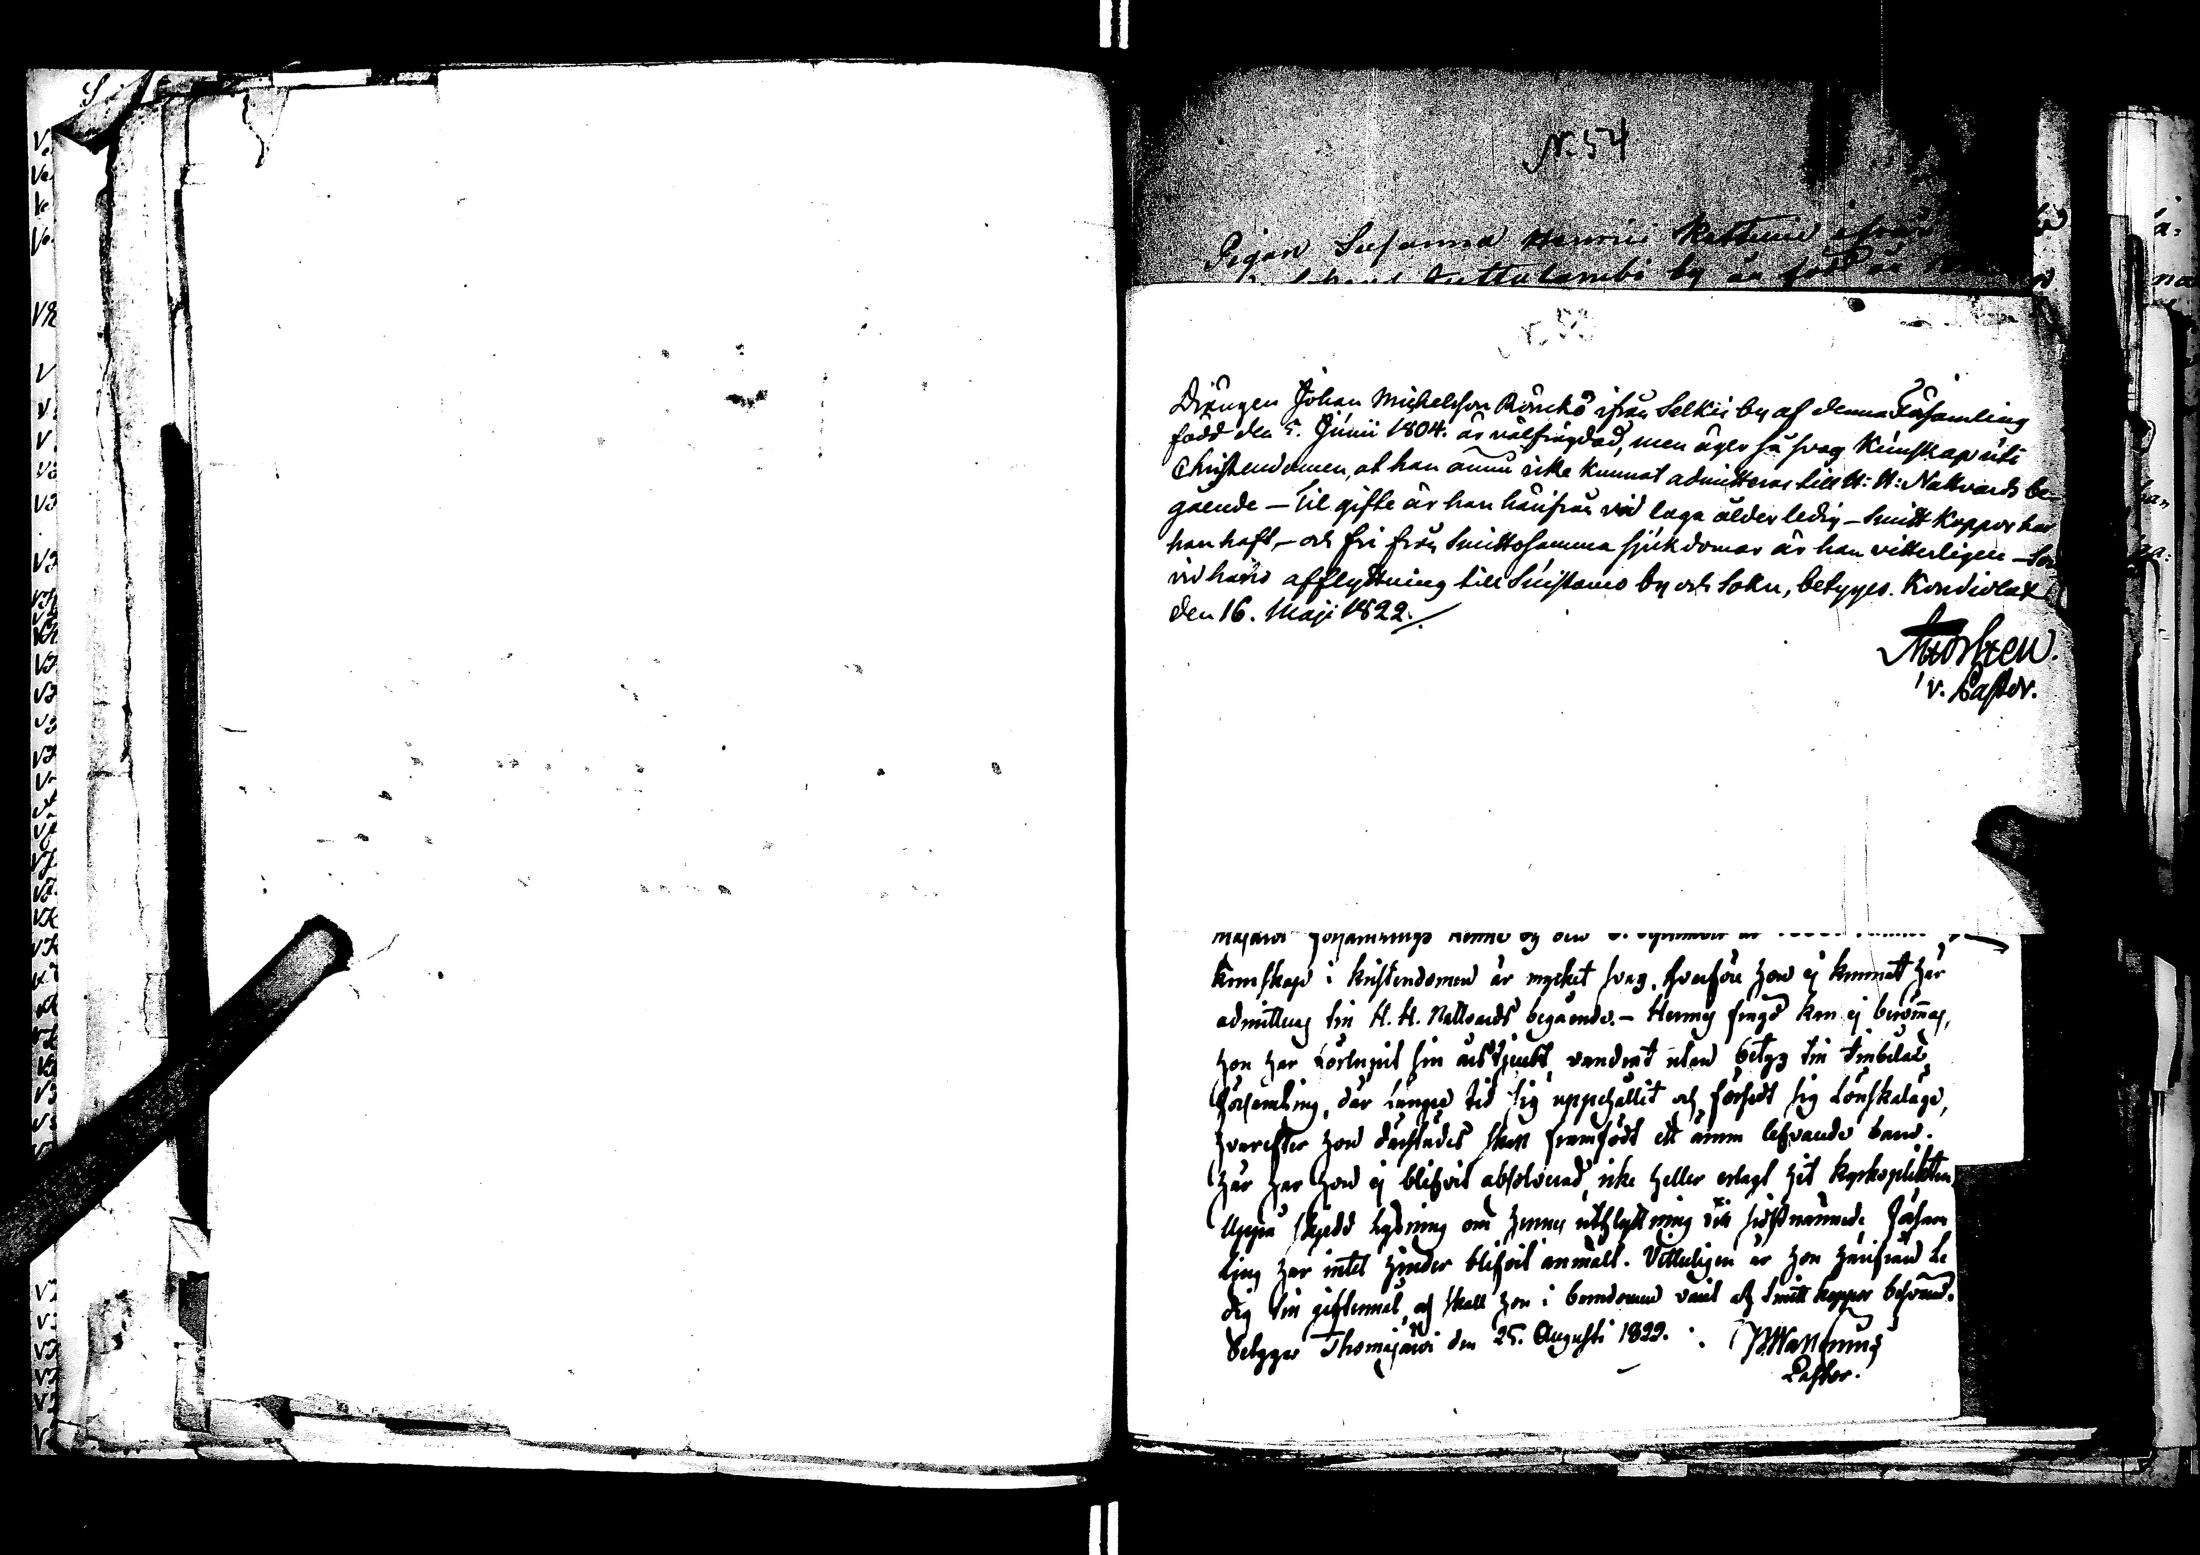 N. 54
Pigan Susanna
by är född år
Drängen Johan Michelsson Rönckö ifrån Selkii by af denna Församling
född den 5. Junii 1804. är välfrägdad, men äger så svag Kunskap uti
Christendomen, at han ännu icke kunnat admitteras till H. H. Nattvards be-
gående – Til gifte är han härifrån vid laga ålder ledig – Smitt Koppor har
han haft, – och fri från Smittosamma sjukdomar är han vitterligen –
vid hans afflyttning till Suistamo by och Sokn, betyges. Kondiolax
den 16. Maji 1822.
v. Pastor.
Kunskap i kristendomen är mycket svag, hvarföre hon ej kunnat här
admitteras till H. H. Nattvards begående. – Hennes frägd kan ej berömmas,
hon har förlupit sin årstjenst, vandrat utan betyg till Imbilaks
Församling, där längre tid sig uppehållit och försedt sig Lönskaläge,
hvarefter hon därstädes skall framfödt ett ännu lefvande barn.
Här har hon ej blifvit absolverad, icke heller erlagt hit kyrkoplikten
Uppå skjedd lysning om hennes utflyttning till sistnämnde Försam
ling har intet hinder blifvit anmält. Vitterligen är hon härifrån le
dig till giftermål, och skall hon i barndomen varit af Smitt koppor besvärad.
Betygar Thomajärvi den 25. Augusti 1822.
Pastor.